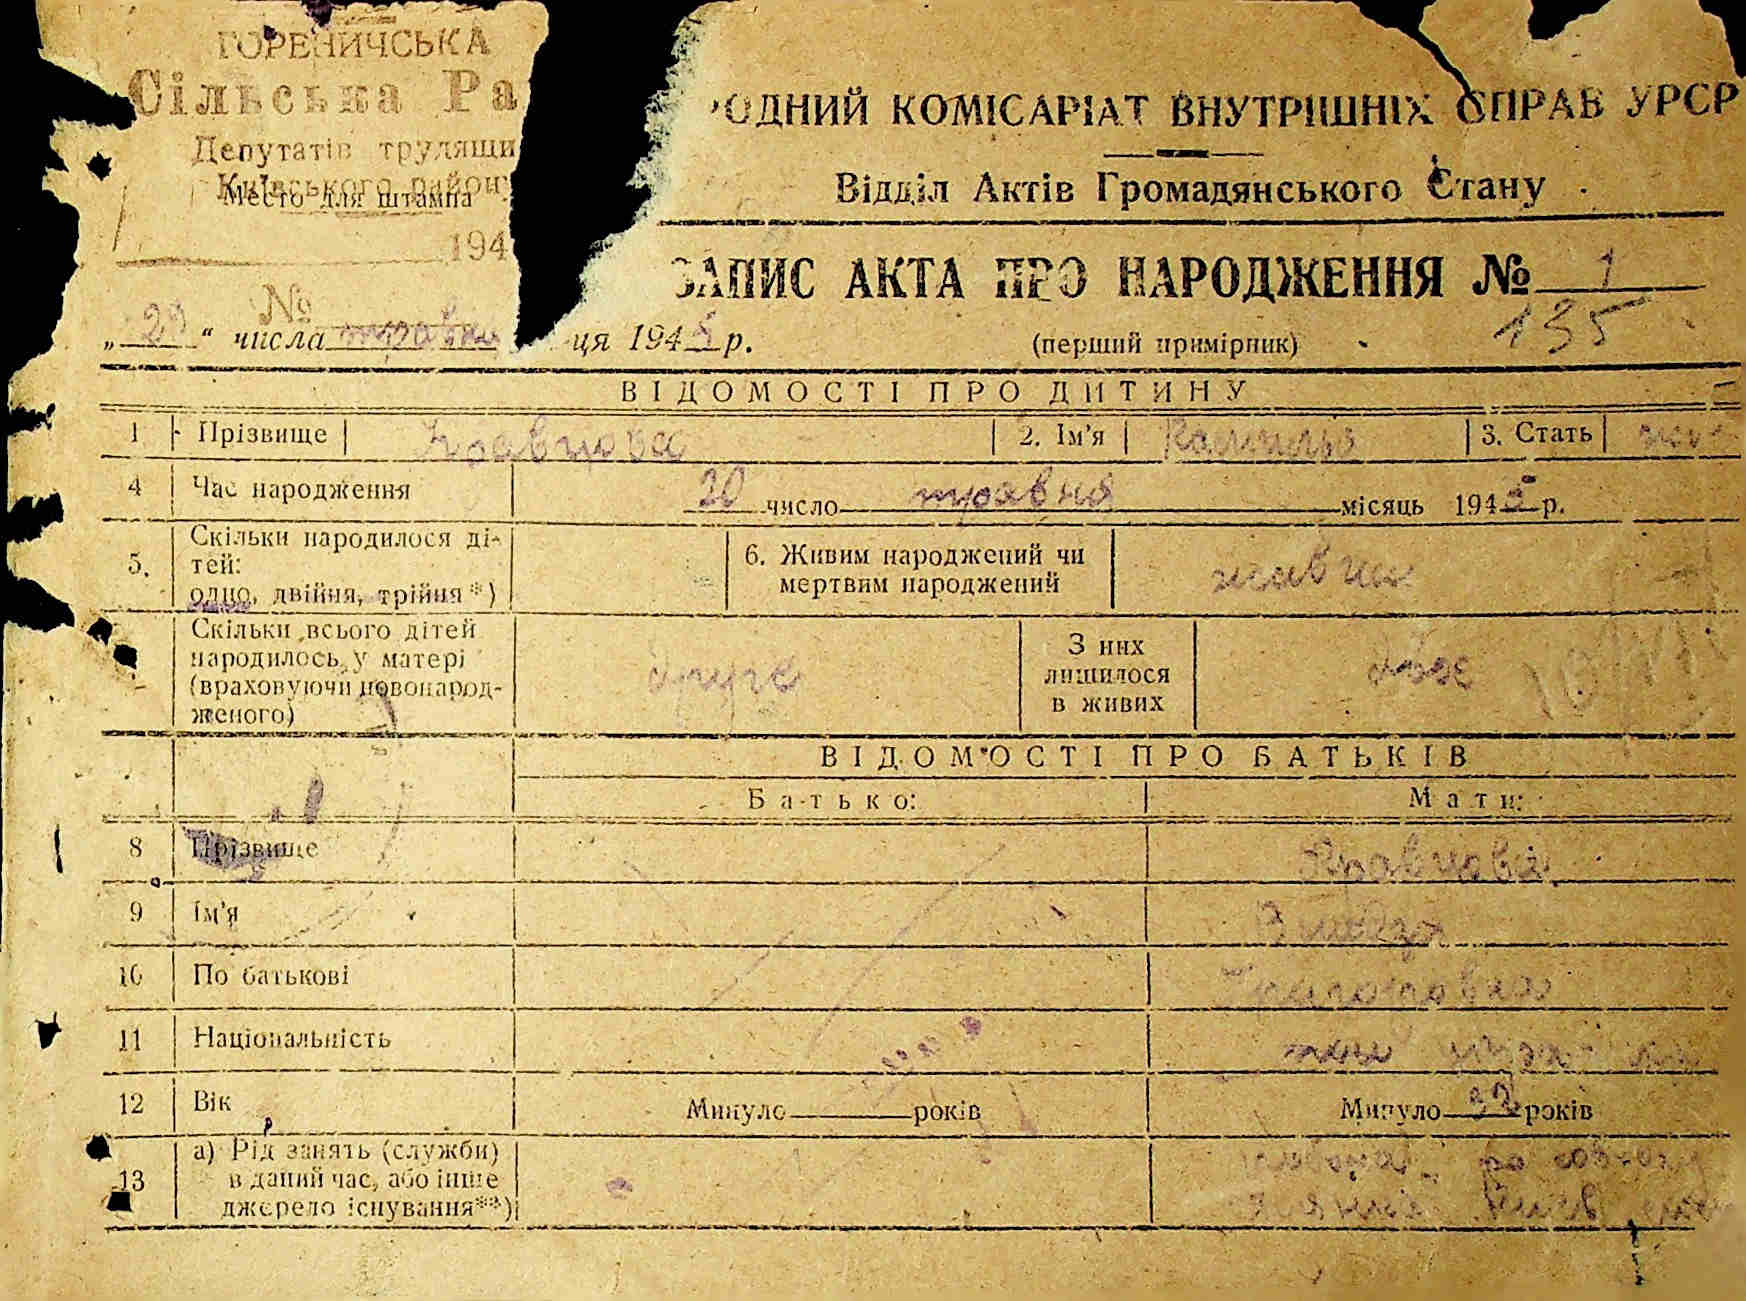 ГОРЕНИЧСЬКА
Сільська Ра
Депутатів трудящи
Київського району
Место для штампа
194
№
ОДНИЙ КОМІСАРІАТ ВНУТРІШНІХ СПРАВ УРСР
Відділ Актів Громадянського Стану
ЗАПИС АКТА ПРО НАРОДЖЕННЯ № 1
135
„ 29 “ числа травня ця 1945 р.
(перший примірник)
ВІДОМОСТІ ПРО ДИТИНУ
1 Прізвище Кравцова 2. Ім'я 3. Стать
4 Час народження 20 число травня місяць 1945 р.
5. Скільки народилося ді-
тей:
одно, двійня, трійня*)
6. Живим народжений чи
мертвим народжений
Скільки всього дітей
народилось у матері
(враховуючи новонарод-
женого)
друге
З них
лишилося
в живих
двоє
ВІДОМОСТІ ПРО БАТЬКІВ
Батько: Мати:
8 Прізвище Кравцова
9 Ім'я
10 По батькові Григоровна
11 Національність
12 Вік Минуло років Минуло 32 років
13 а) Рід занять (служби)
в даний час, або інше
джерело існування**)